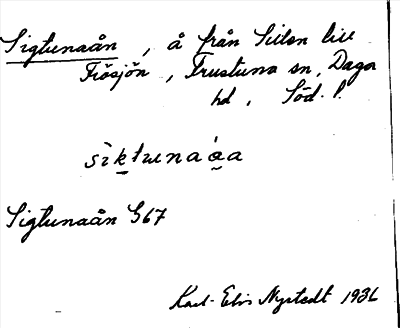 Sigtunaån, å från Sillen till
Fräsjön, Trustuna sn, Daga
hd, Söd. l.
sìktunaáa
Sigtunaån G67
Karl-Elis Nystedt 1936